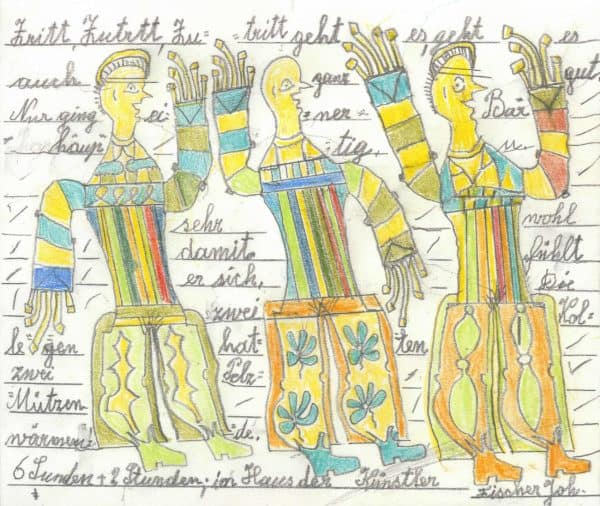 Zritt, Zutrtt, Zu= =tritt geht es, geht es
auch ganz gut.
Nur ging ei =ner Bär
=häup tig, u.
sehr wohl
damit fühlt
er sich, Die
zwei Kol=
le =gen hat= ten
zwei Pelz=
=Mützen
wärmen= de.
6 Sunden + 2 Stunden, im Haus der Künstler Fischer Joh.